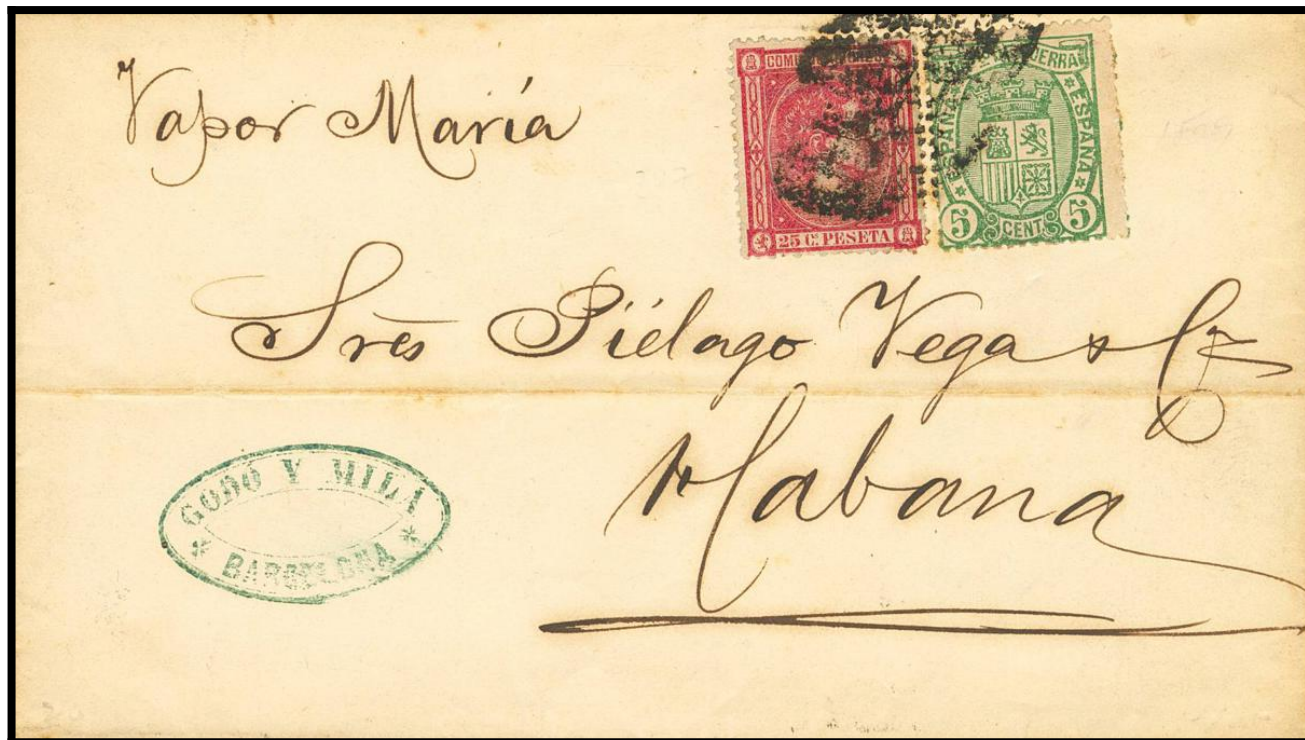 Vapor María
COMUNICACIONES
25 Cs PESETA
DE GUERRA
ESPAÑA * ESPAÑA
5 CENT. 5
Sres Piélago Vega & Cª
Habana
GODÓ Y MILÁ
* BARCELONA *